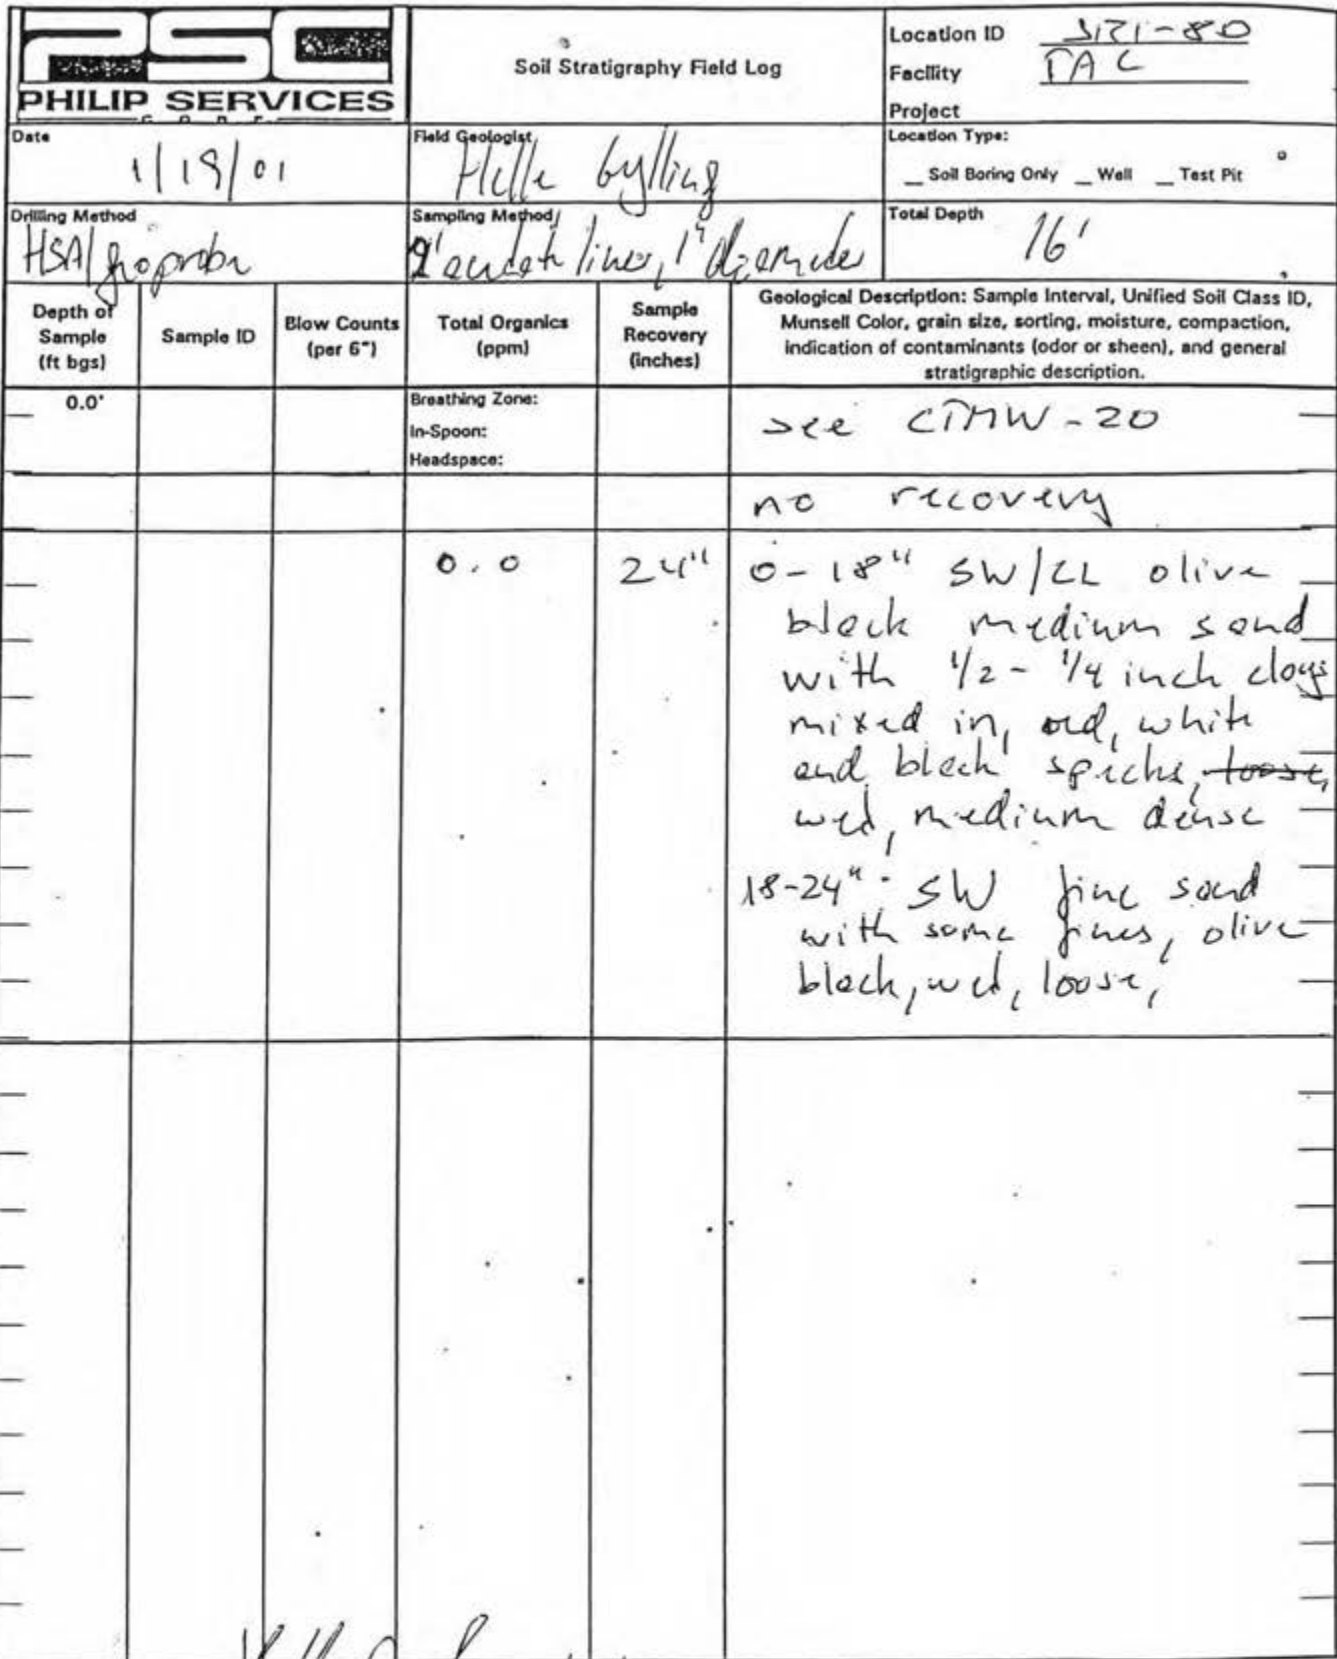 PSC
PHILIP SERVICES
CORP.
Soil Stratigraphy Field Log
Location ID
Facility
Project
Date
1/19/01
Field Geologist
Helle Gylling
Location Type:
__ Soil Boring Only __ Well __ Test Pit
Drilling Method
HSA/geoprobe
Sampling Method
liner, 1"
Total Depth
16'
Depth of
Sample
(ft bgs)
Sample ID
Blow Counts
(per 6")
Total Organics
(ppm)
Sample
Recovery
(inches)
Geological Description: Sample Interval, Unified Soil Class ID,
Munsell Color, grain size, sorting, moisture, compaction,
indication of contaminants (odor or sheen), and general
stratigraphic description.
0.0'
Breathing Zone:
In-Spoon:
Headspace:
see CTMW-20
no recovery
0.0
24"
0-18" SW/CL olive
black medium sand
with 1/2 - 1/4 inch clays
mixed in, white
and black specks, loose,
wet, medium dense
18-24" SW fine sand
with some fines, olive
black, wet, loose,